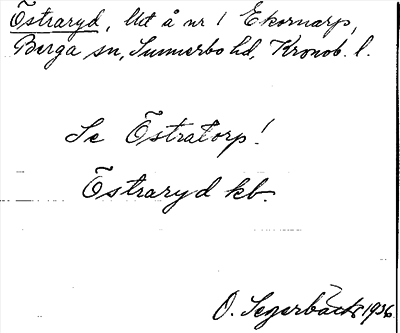 Östraryd, Ut å nr 1 Ekornarp,
Berga sn, Sunnerbo hd, Kronob. l.
Se Östratorp!
Östraryd kb.
O. Segerbäck 1936